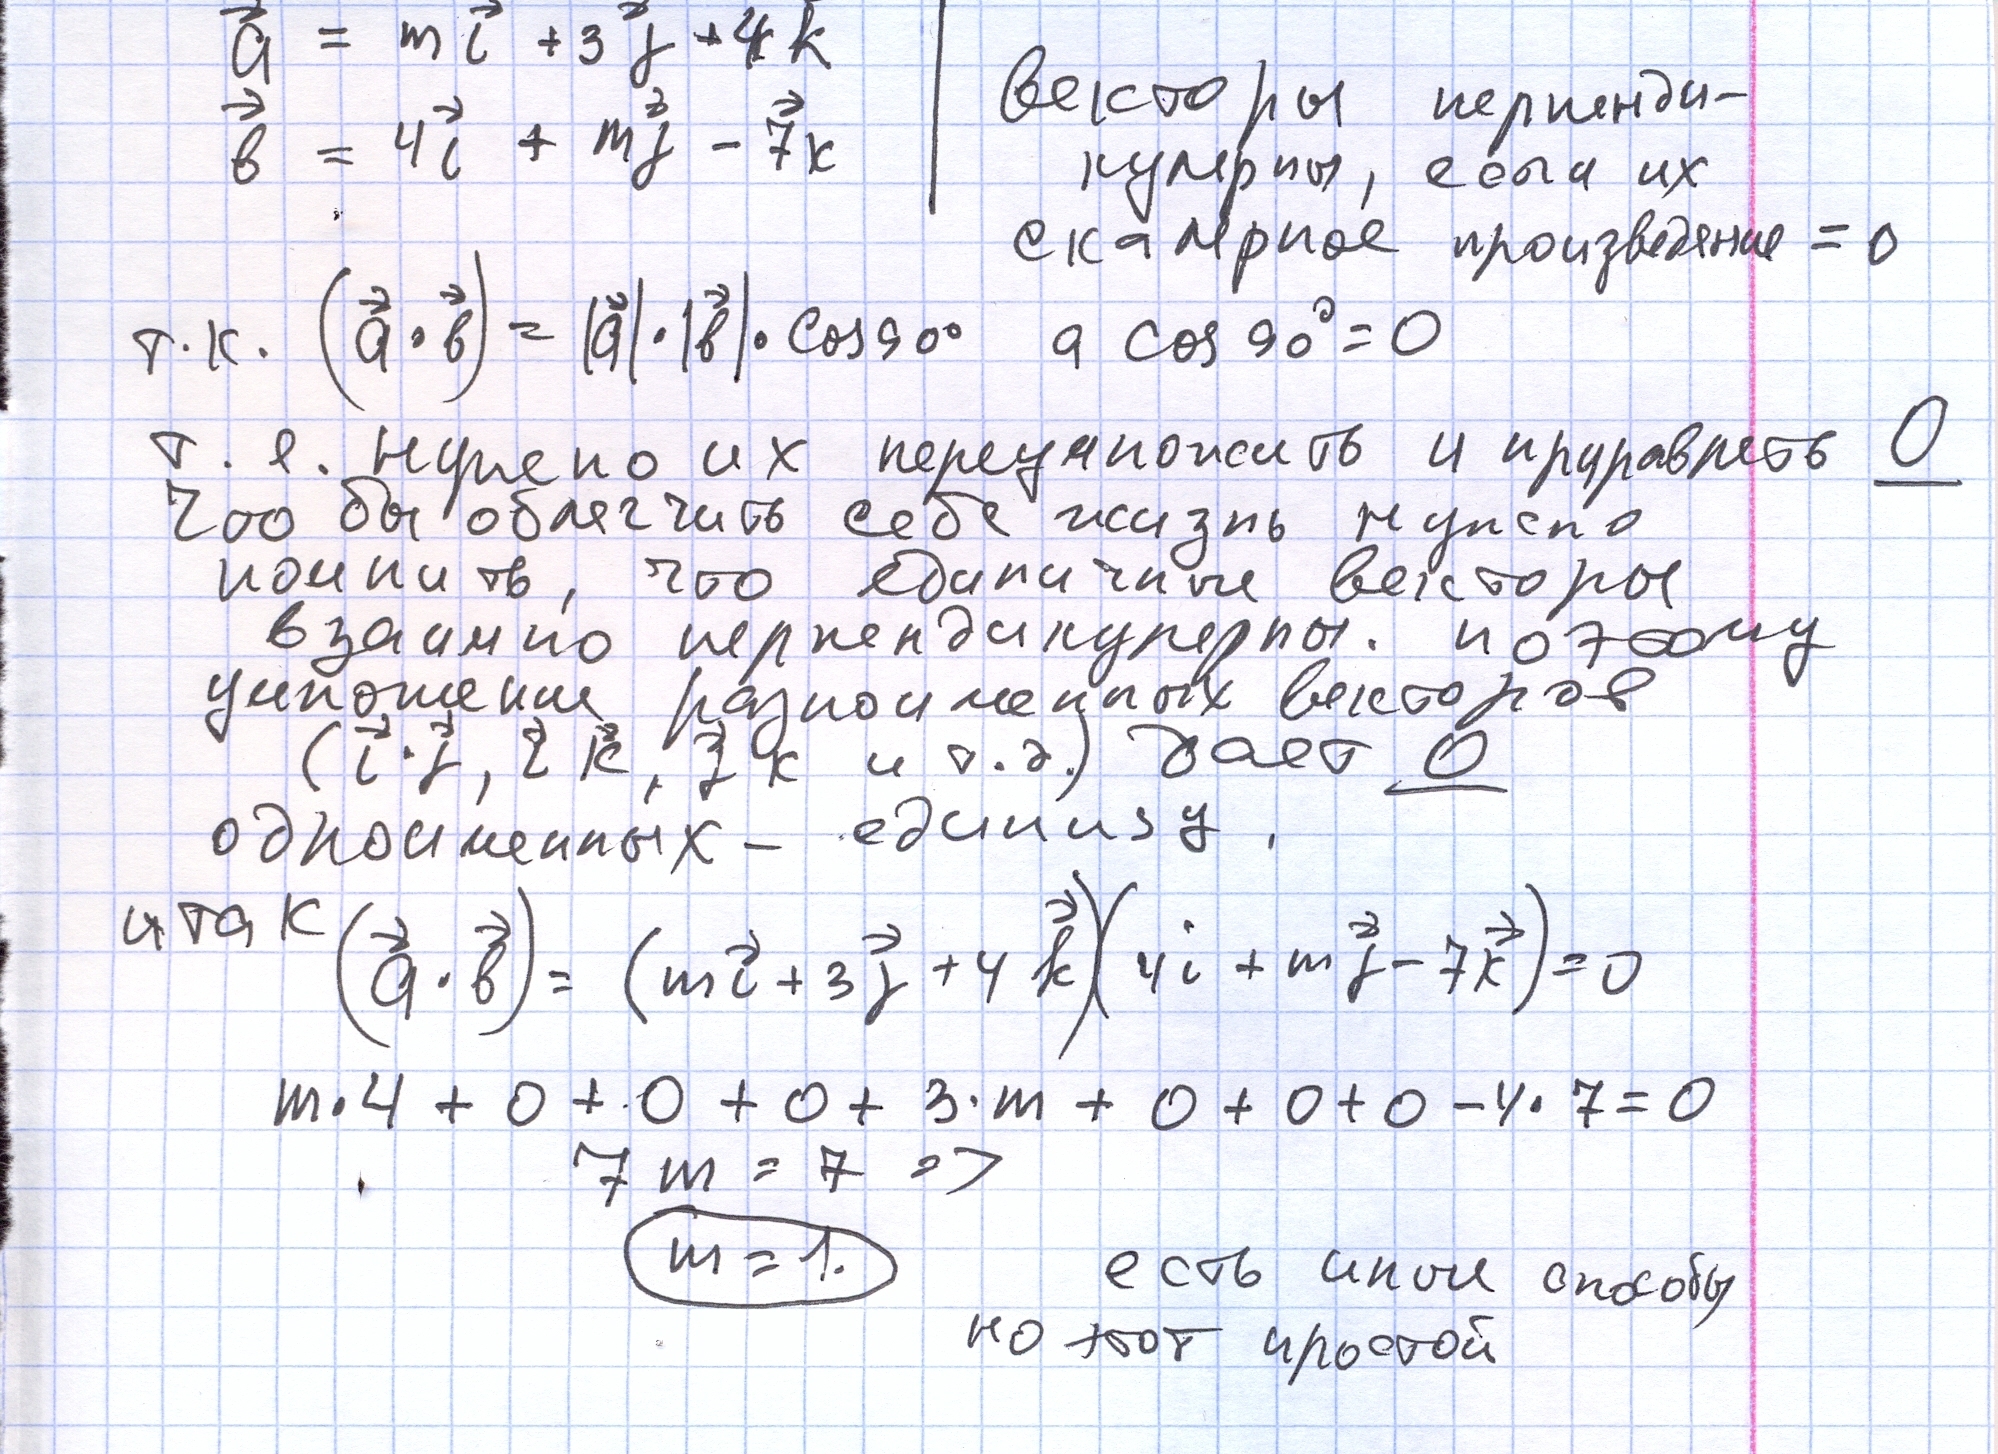 a⃗ = mi⃗ + 3j⃗ + 4k⃗
в⃗ = 4i⃗ + mj⃗ - 7⃗k
векторы перпенди-
кулярны, если их
скалярное произведение = 0
т.к. (a⃗ · в⃗) = |a⃗| · |в⃗| · cos 90° а cos 90° = 0
т.е. нужно их перемножить и приравнять 0
Что бы облегчить себе жизнь нужно
помнить, что единичные векторы
взаимно перпендикулярны. поэтому
умножение разноименных векторов
(i⃗·j⃗, i⃗ k⃗, j⃗ k и т.д.) дает 0
одноименных - единизу,
итак (a⃗ · в⃗) = (mi⃗ + 3j⃗ + 4k⃗)(4i + mj⃗ - 7k⃗) = 0
m·4 + 0 + 0 + 0 + 3·m + 0 + 0 + 0 - 4·7 = 0
7m = 7 =>
m = 1.
есть иные способы
но этот простой